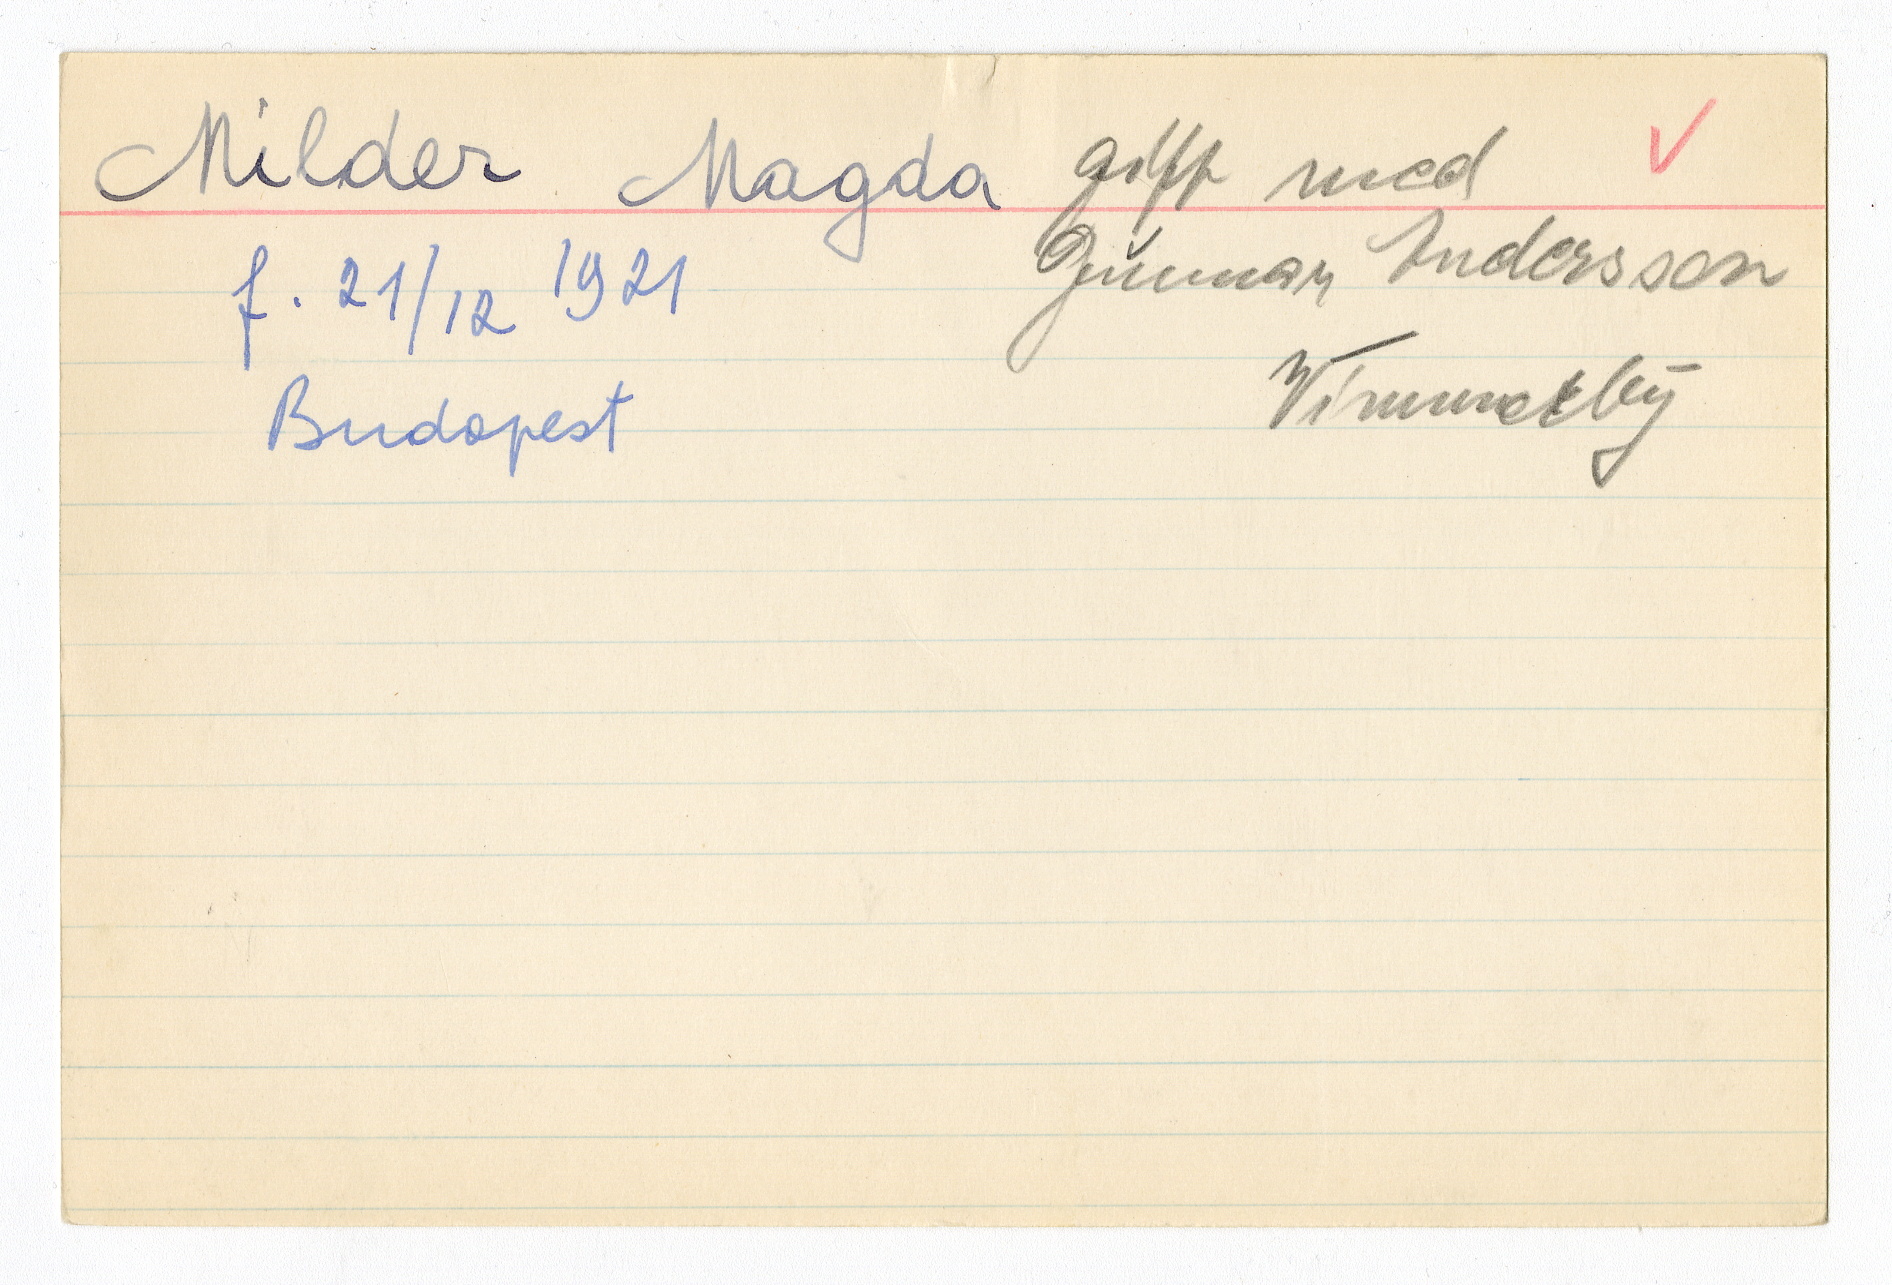 Milder Magda gift med
Gunnar Andersson
f. 21/12 1921
Vimmerby
Budapest